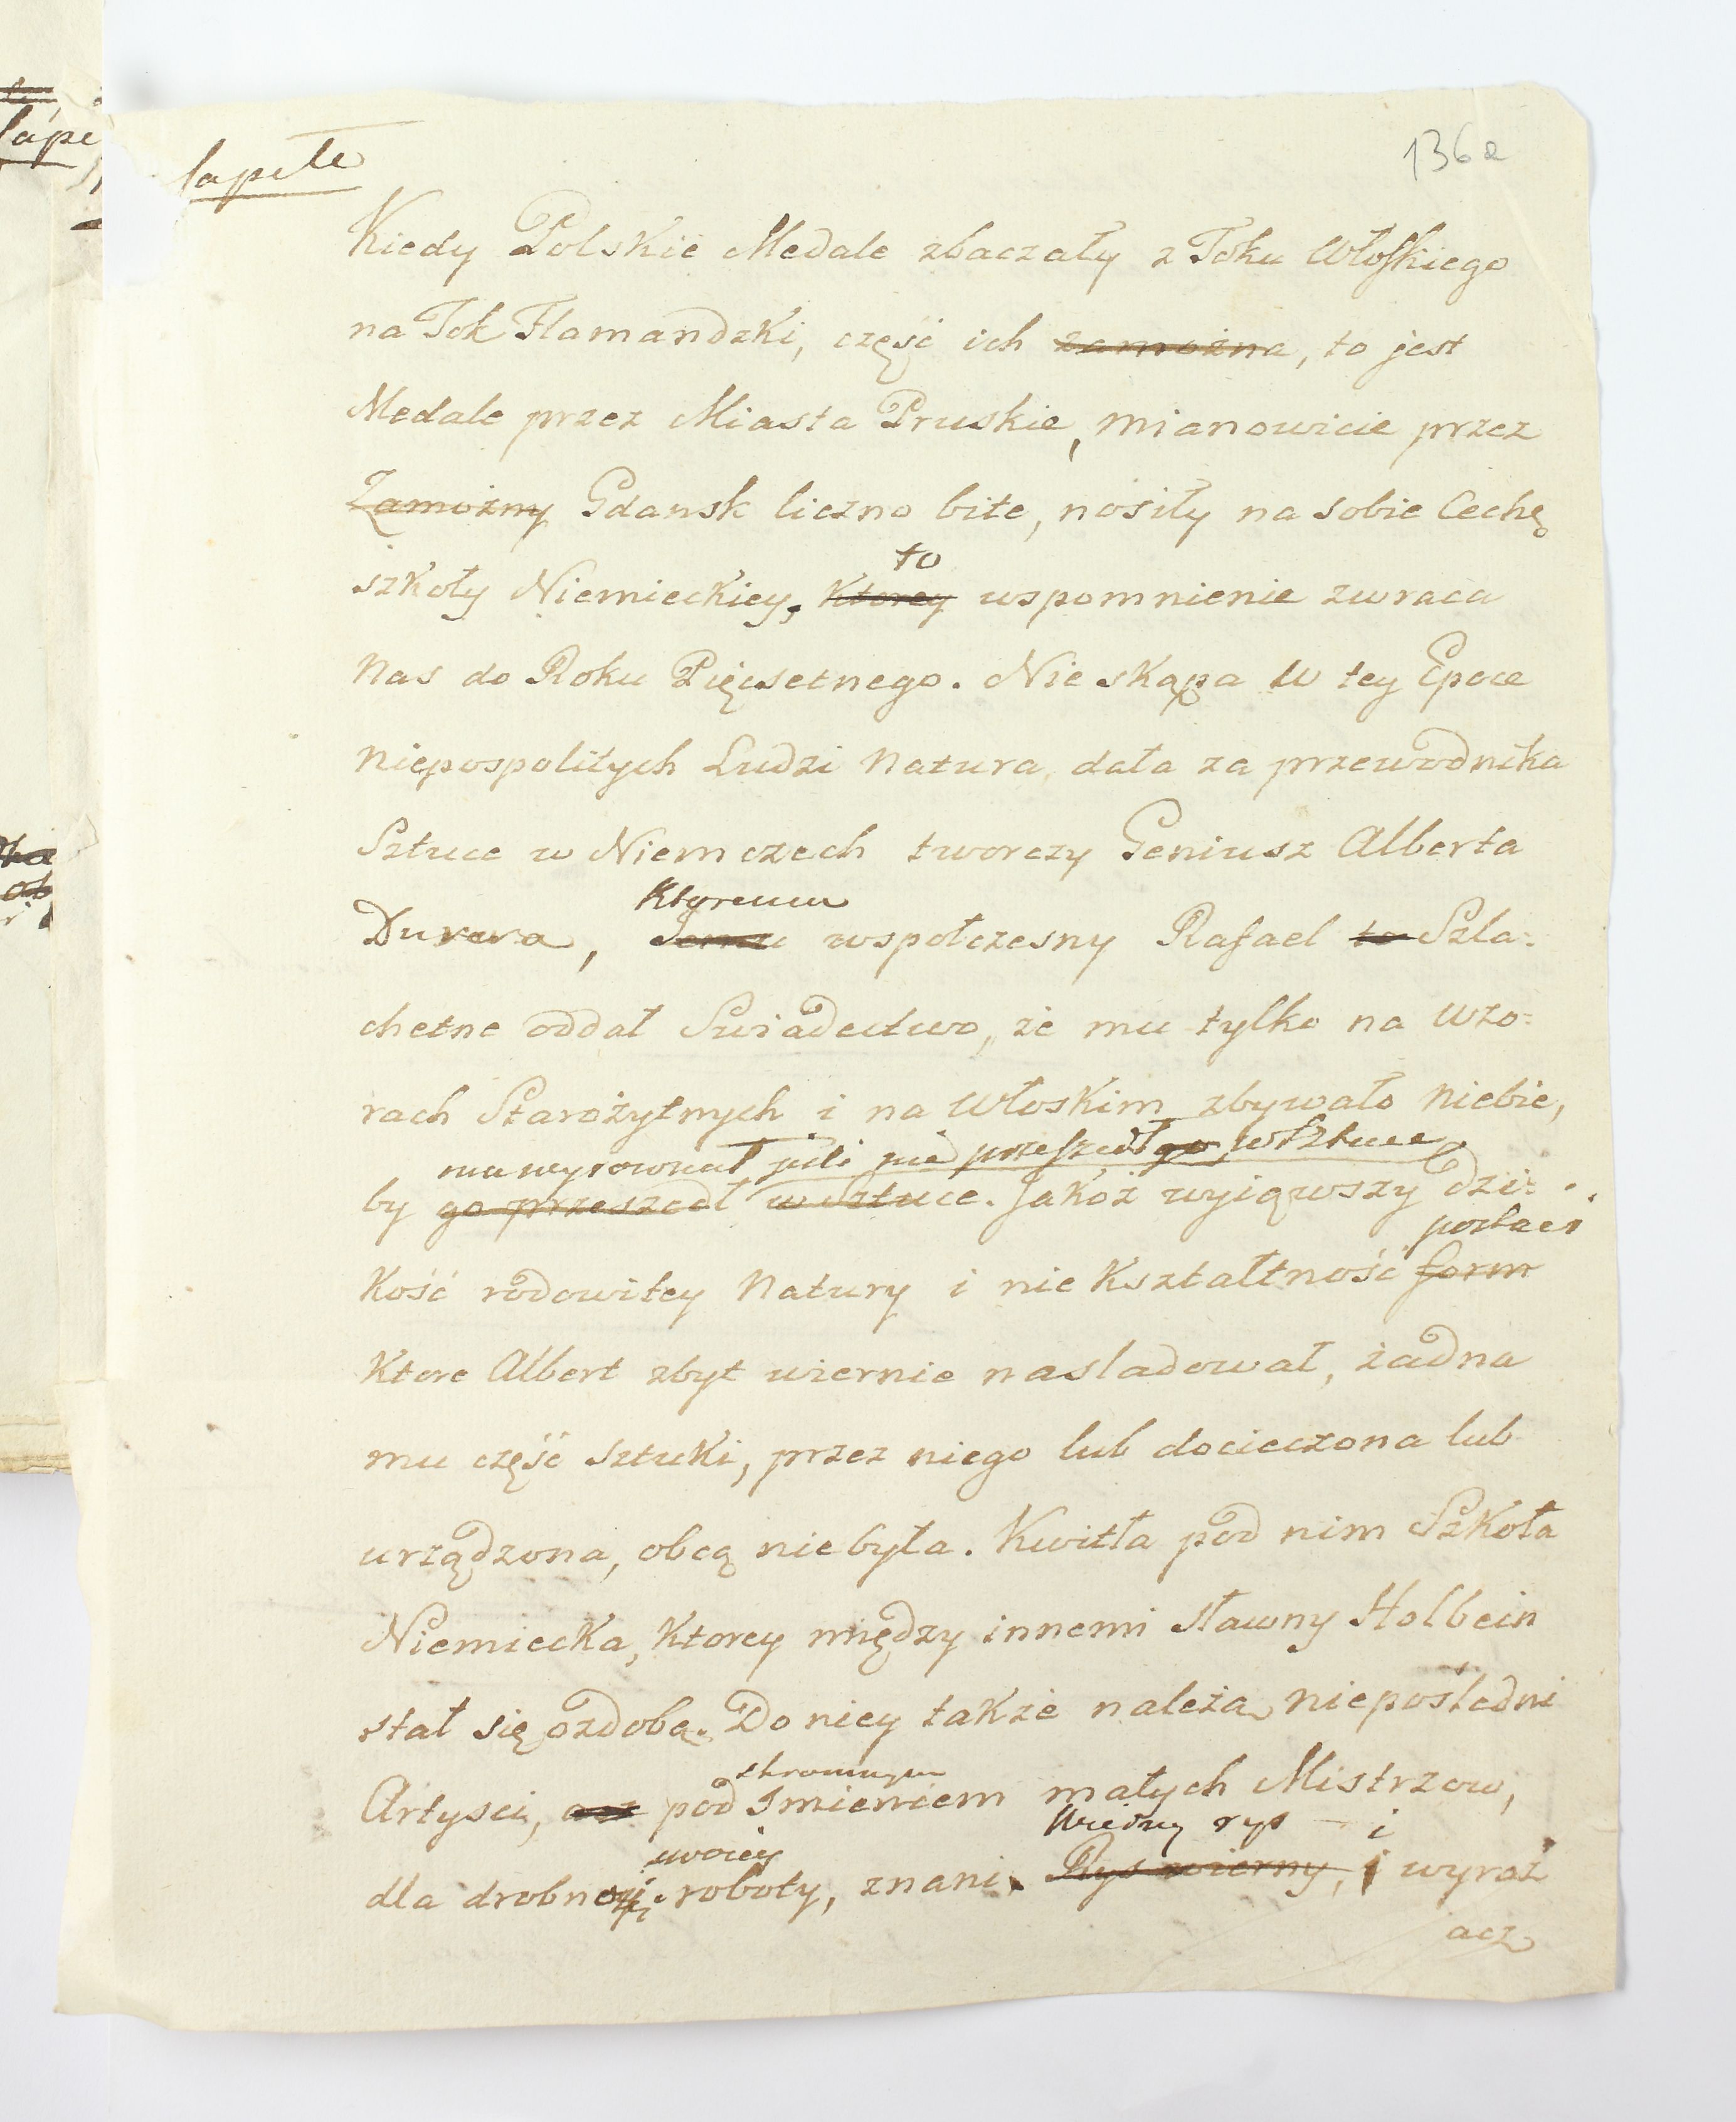 136a
lapete
Kiedy Polskie Medale zbaczały z Toku Włoskiego
na Tok Flamandzki, część ich zamożna, to jest
Medale przez Miasta Pruskie, mianowicie przez
Zamożny Gdansk liczno bite, nosiły na sobie Cechę
to
szkoły Niemieckiey, Ktorey wspomnienie zwraca
nas do Roku Pięcsetnego. Nie skąpa w tey Epoce
niepospolitych Ludzi Natura, dała za przewodnika
Sztuce w Niemczech tworczy Geniusz Alberta
Ktoremu
Durera, Temu wspołczesny Rafael to Szla:
chetne oddał Swiadectwo, że mu tylko na wzo:
rach Starożytnych i na Włoskim zbywało Niebie,
mu wyrownał jeśli nie przeszedł go w Sztuce
by go przeszedł w sztuce. Jakoż wyiąwszy dzi:
postaci
Kość rodowitey Natury i nie Kształtność form
Ktore Albert zbyt wiernie nasladował, żadna
mu część Sztuki, przez niego lub docieczona lub
urządzona, obcą nie była. Kwitła pod nim Szkoła
Niemiecka, Ktorey między innemi sławny Holbein
stał się ozdobą. Do niey także należą niepośledni
skromnym
Artysci, acz pod Imieniem małych Mistrzow,
swoiey Wierny rys i
dla drobney roboty, znani. Rys wierny, i wyraż
acz